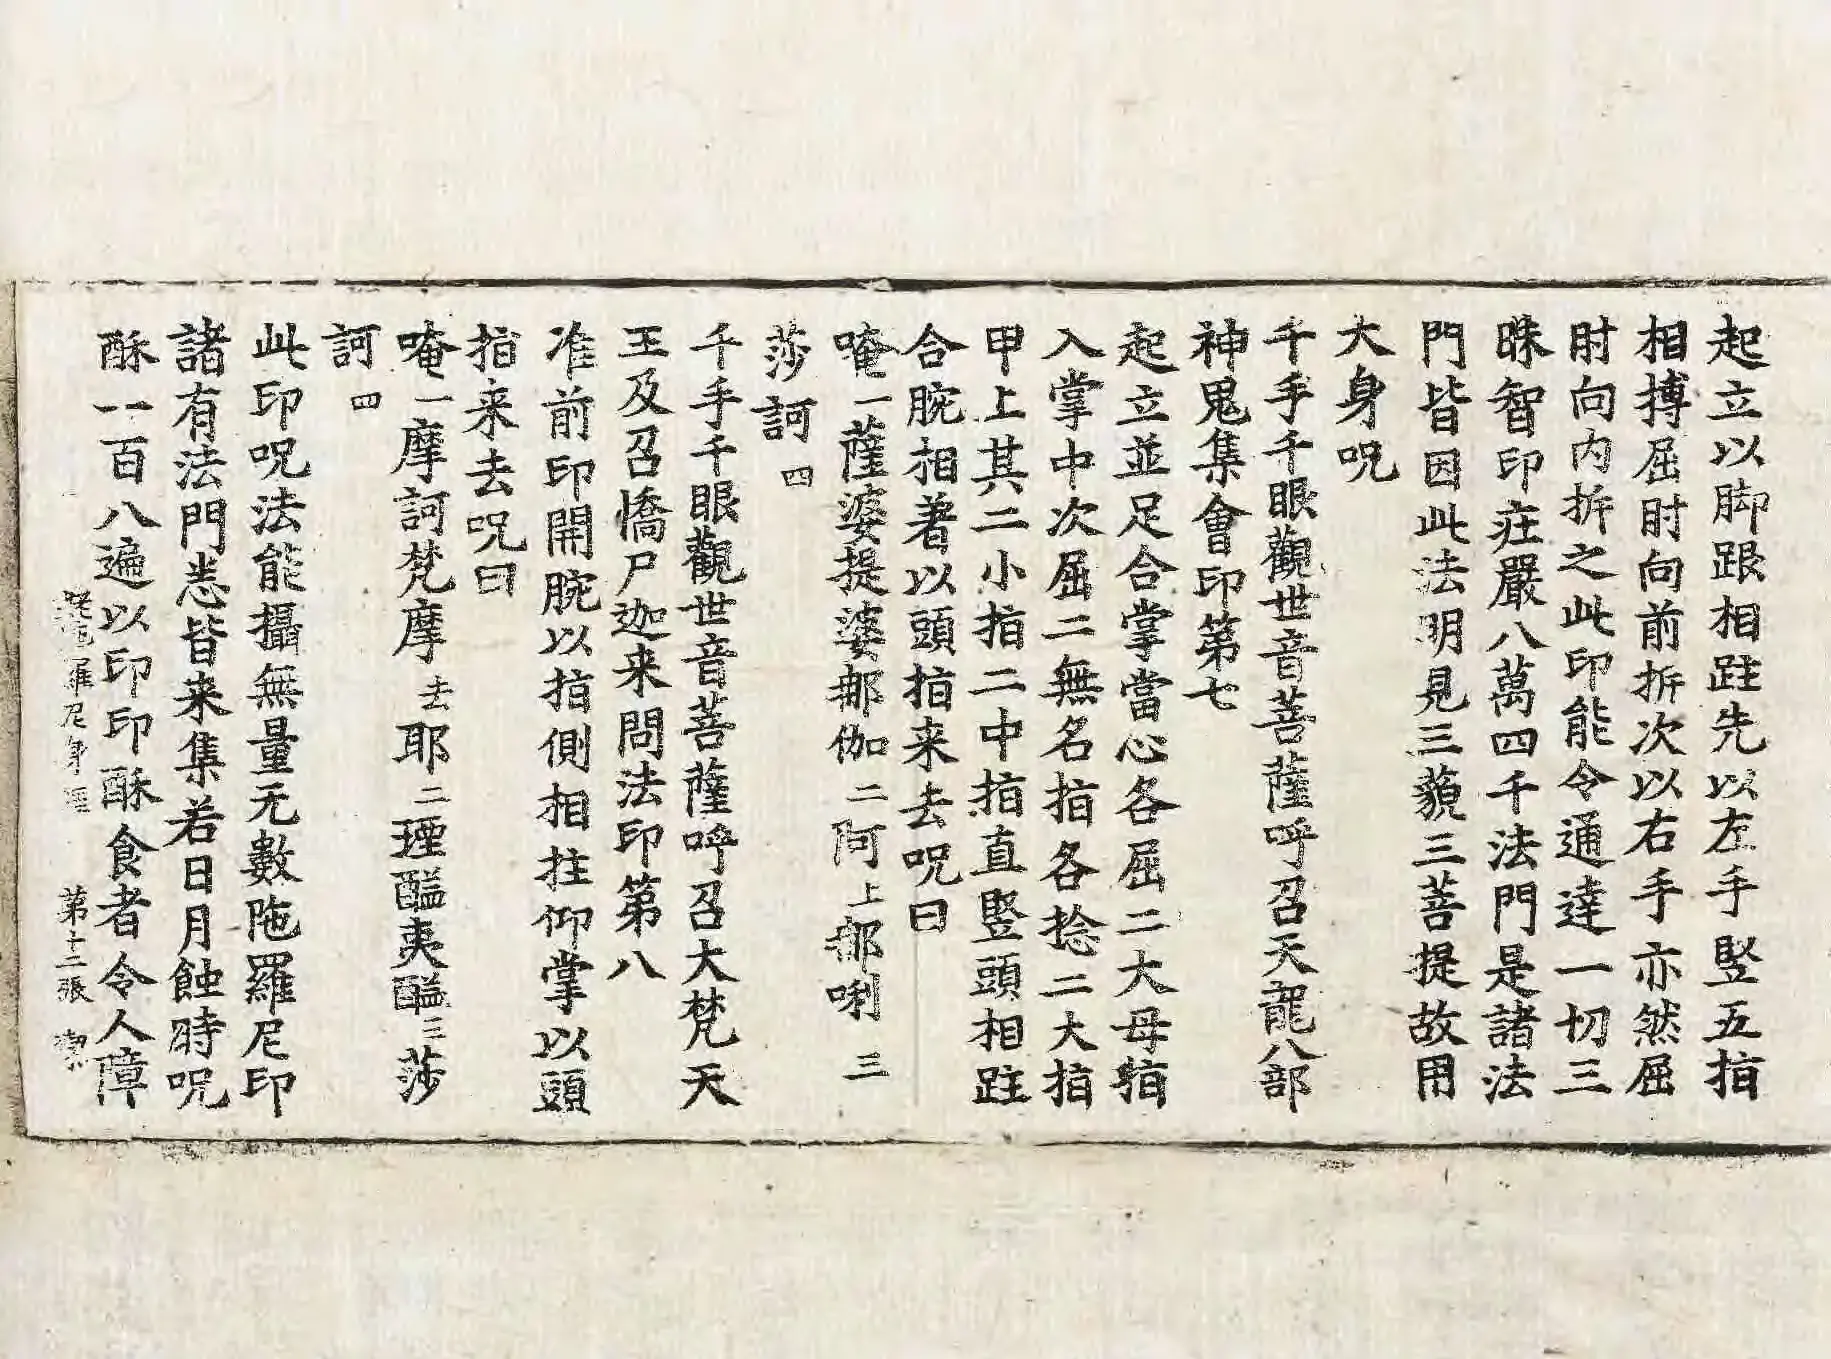 起立以脚跟相跓先以左手竪五指
相搏屈肘向前拆次以右手亦然屈
肘向内拆之此印能令通達一切三
昧智印庄嚴八萬四千法門是諸法
門皆因此法明見三藐三菩提故用
大身呪
千手千眼觀世音菩薩呼召天龍八部
神鬼集會印第七
起立並足合掌當心各屈二大母指
入掌中次屈二無名指各捻二大指
甲上其二小指二中指直竪頭相跓
合腕相著以頭指来去呪曰
唵一薩婆提婆那伽二阿上那唎三
莎訶四
千手千眼觀世音菩薩呼召大梵天
王及召憍尸迦来問法印第八
准前印開腕以指側相拄仰掌以頭
指来去呪曰
唵一摩訶梵摩去耶二瑿醯夷醯三莎
訶四
此印呪法能攝無量无數陁羅尼印
諸有法門悉皆来集若日月蝕時呪
酥一百八遍以印印酥食者令人障
羅尼身 第十二張